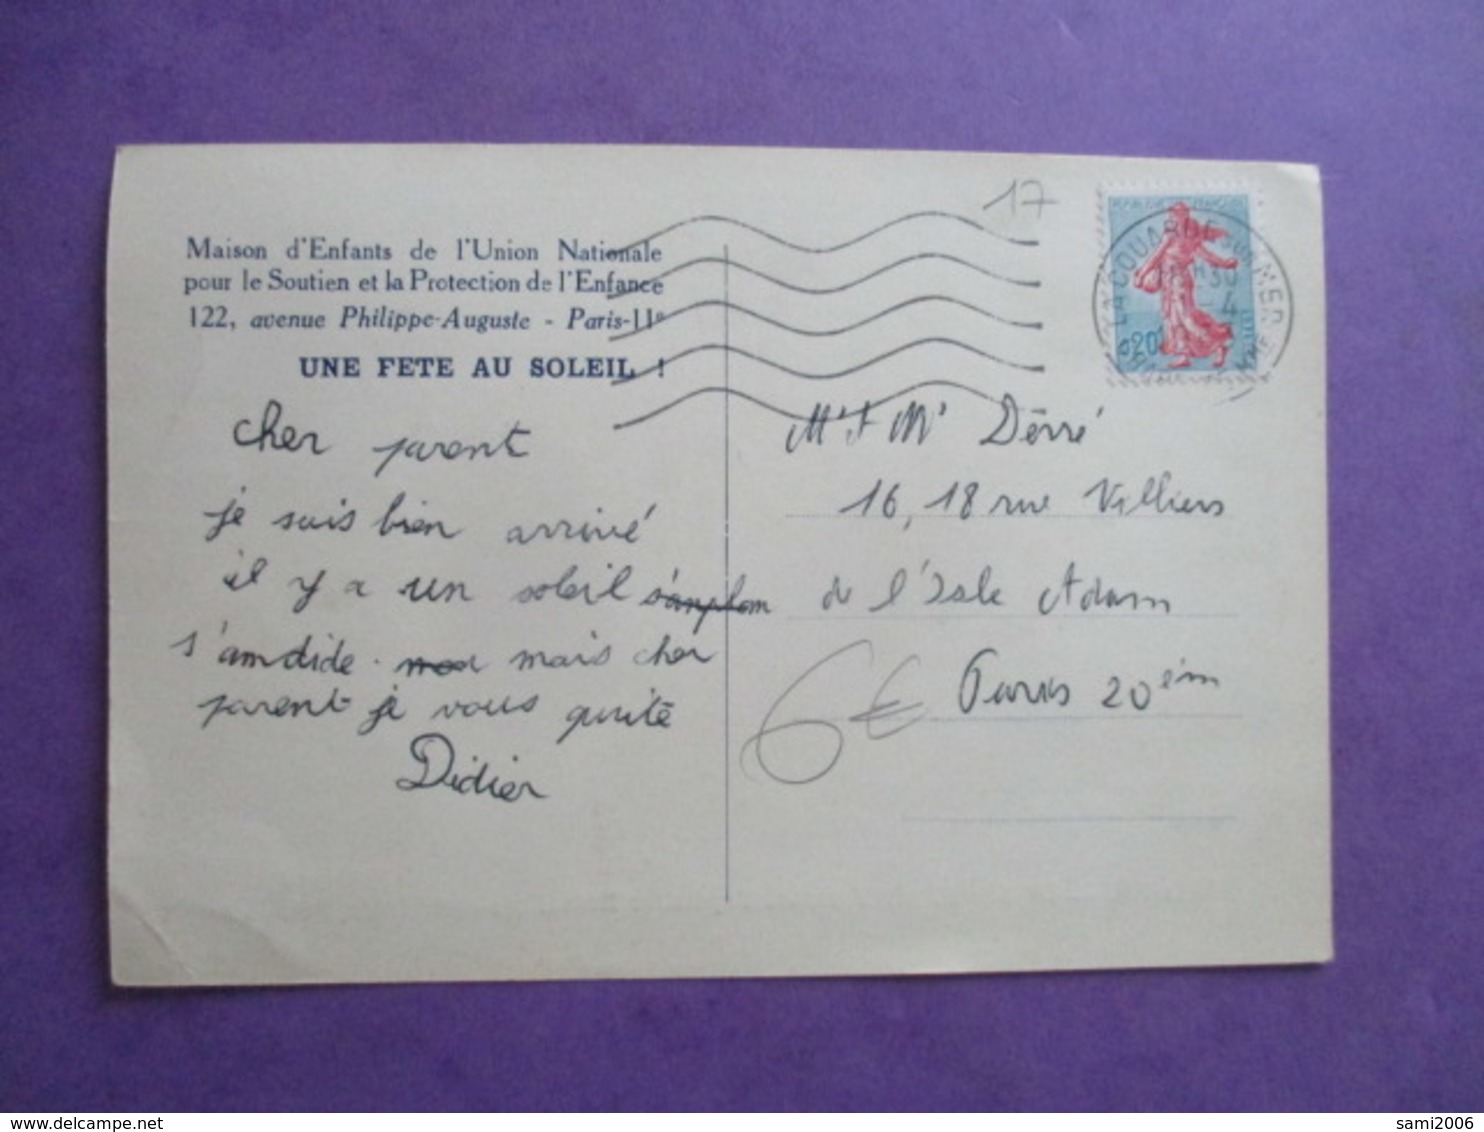 17
Maison d'Enfants de l'Union Nationale
pour le Soutien et la Protection de l'Enfance
122, avenue Philippe-Auguste - Paris-11e
UNE FETE AU SOLEIL !
LA COUARDE SUR MER
30
4
0,20F
cher parent
je suis bien arrivé
il y a un soleil
s'amdide. mais cher
parent je vous quité
Didier
Mr & Mr Dérré
16, 18 rue Villiers
de l'Isle Adam
Paris 20ém
6€
sami2006